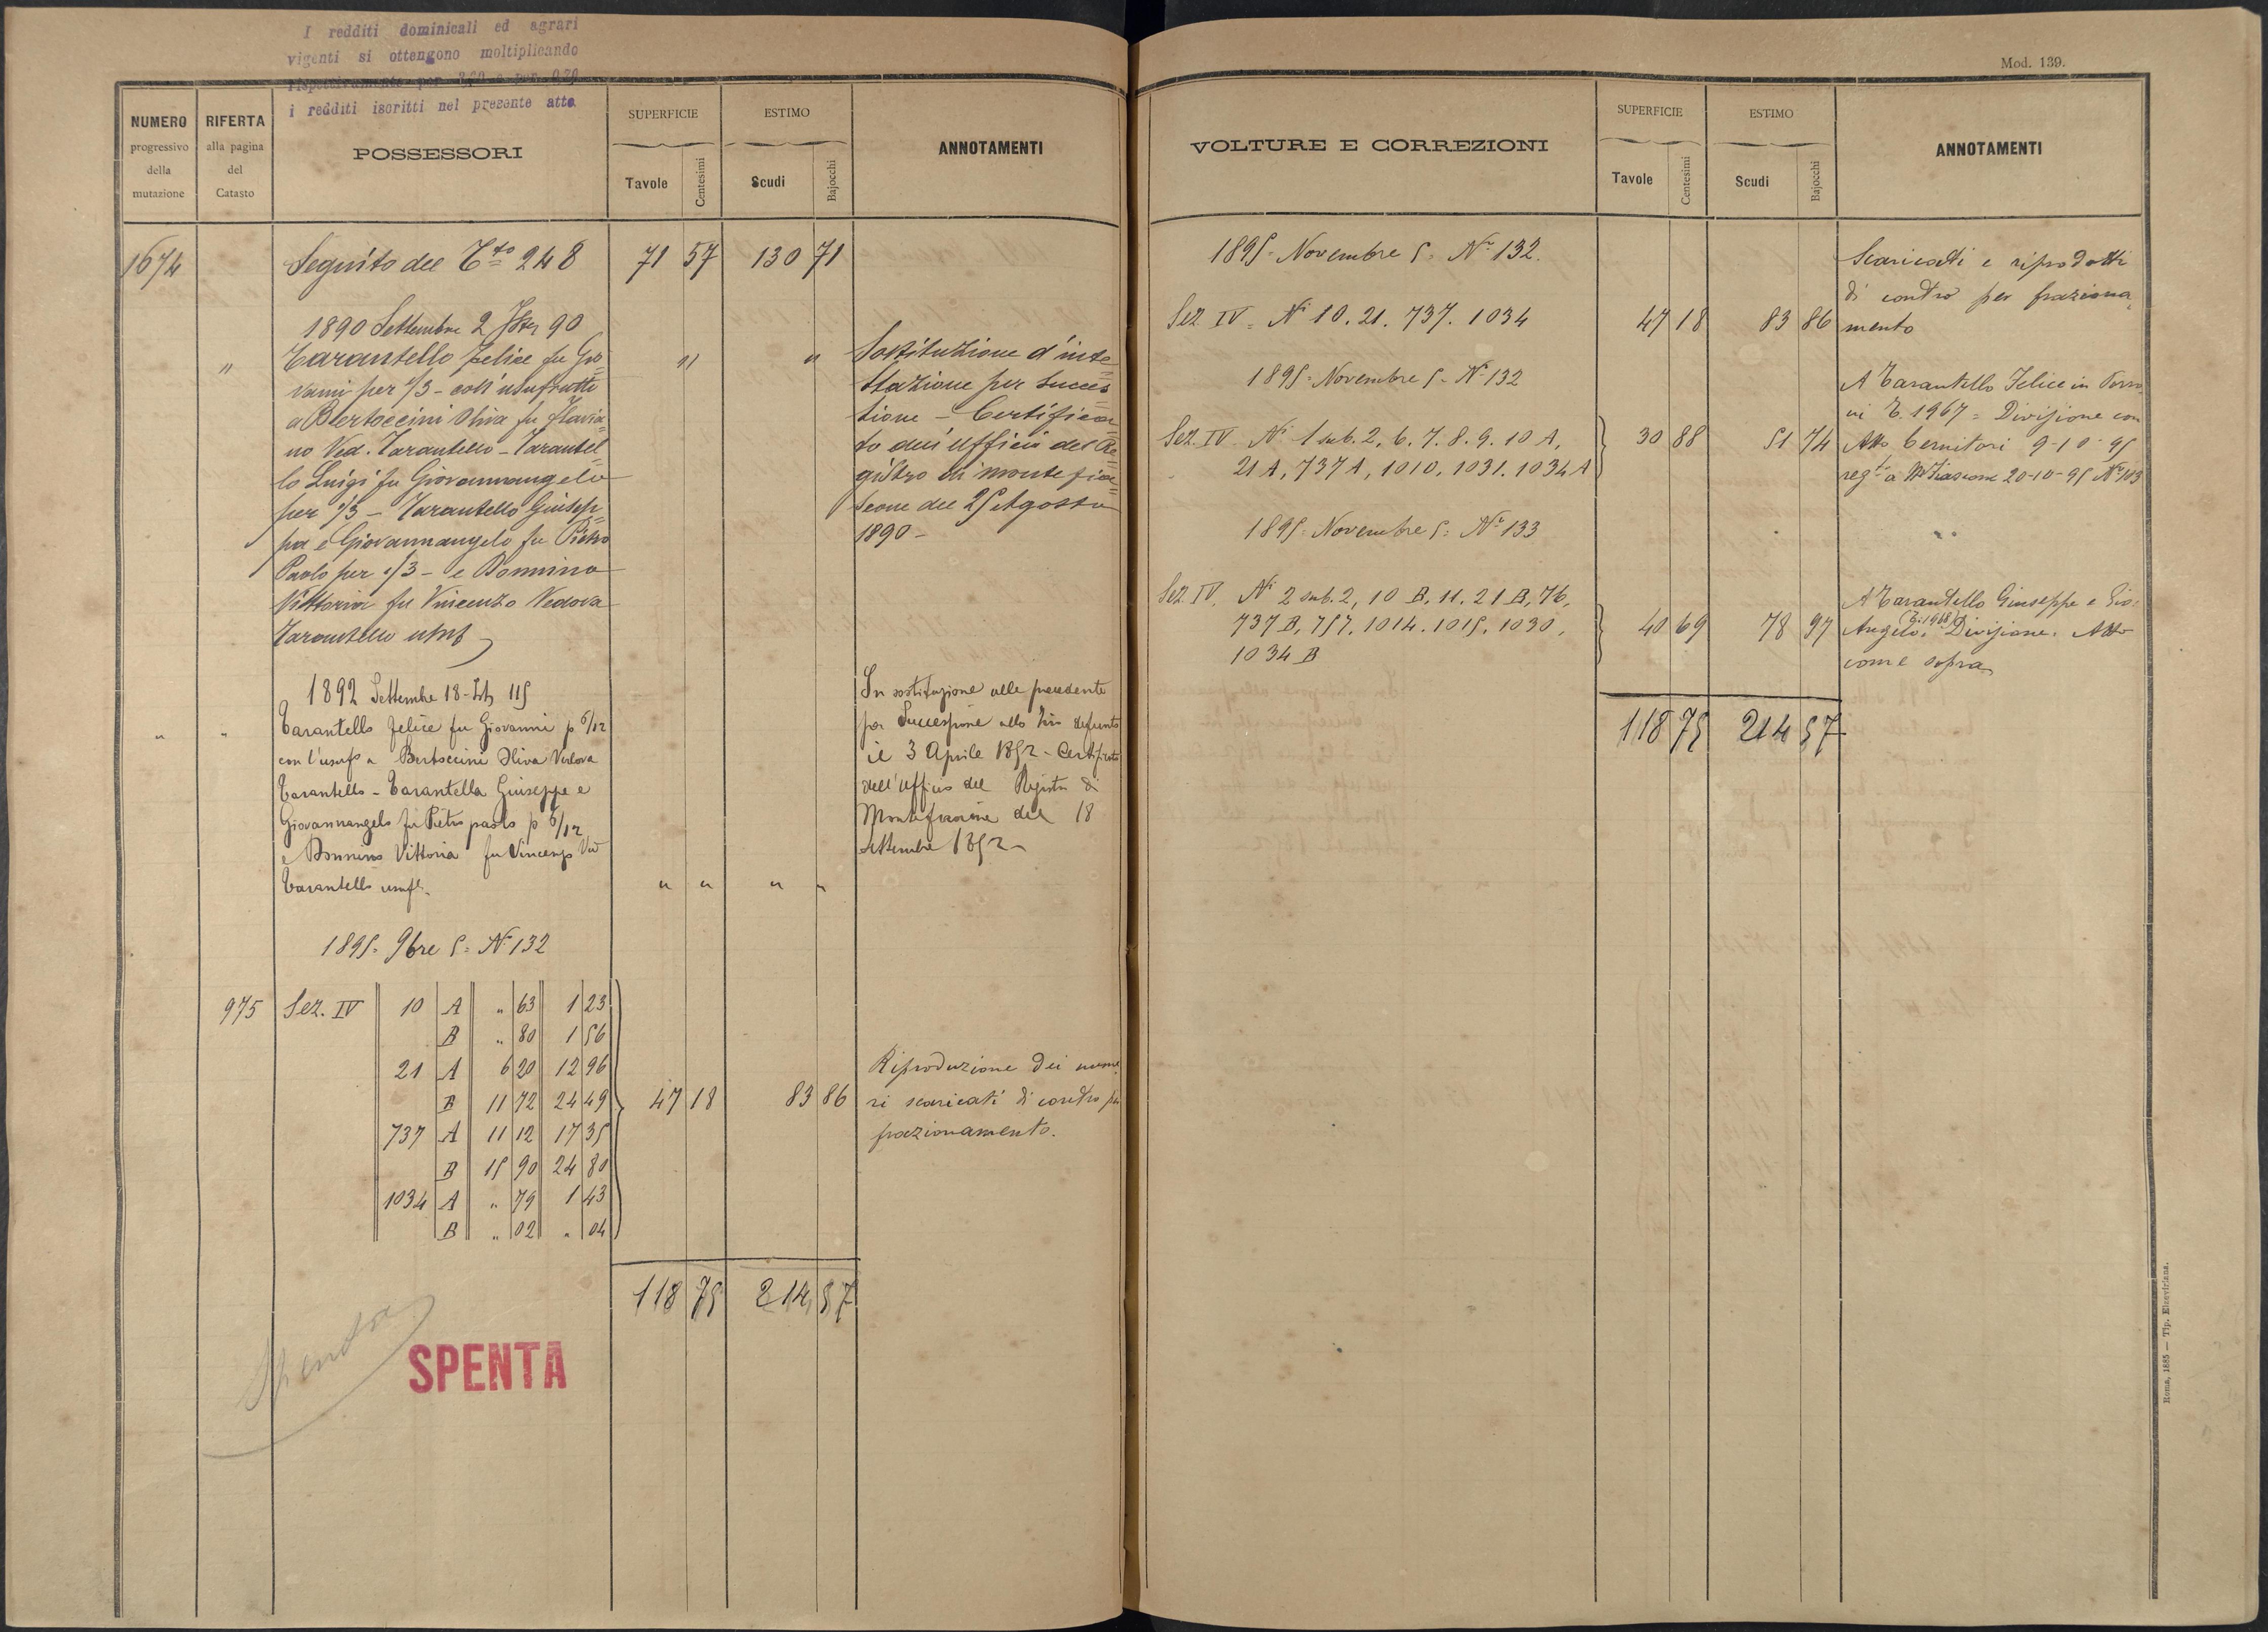 I redditi dominicali ed agrari
vigenti si ottengono moltiplicando
rispettivamente per
i redditi iscritti nel presente atto
NUMERO
progressivo
della
mutazione
RIFERTA
alla pagina
del
Catasto
POSSESSORI
SUPERFICIE
Tavole
Centesimi
ESTIMO
Scudi
Bajocchi
ANNOTAMENTI
1674 Seguito del Cto 248 71 57 130 71
1890 Settembre 2 90
" Tarantello Felice fu Gio= " "
vanni per 1/3 - coll'usufrutto
a Bertoccini Oliva fu Flavia=
no Ved. Tarantello - Tarantel=
lo Luigi fu Giovannangelo
per 1/3 - Tarantello Giusep=
pa e Giovannangelo fu Pietro
Paolo per 1/3 - e Bonnino
Vittoria fu Vincenzo Vedova
Tarantello usuf
Sostituzione d'inte=
stazione per succes=
sione - Certifica=
to dell'ufficio del Re=
gistro di Montefia=
scone del 25 Agosto
1890 -
1892 Settembre 18 - 115
" " Tarantello Felice fu Giovanni p 6/12
con l'usufo a Bertoccini Oliva Vedova
Tarantello - Tarantella Giuseppe e
Giovannangelo fu Pietro paolo p 6/12
e Bonnino Vittoria fu Vincenzo Ved
Tarantello usufa. " " " "
In sostituzione alla precedente
per Successione allo Zio defunto
il 3 Aprile 1892 - Certificato
dell'Ufficio del Registro di
Montefiascone del 18
settembre 1892 -
1895 = 9bre 5 = N. 132
975 Sez. IV 10 A " 63 1 23
B " 80 1 56
21 A 6 20 12 96
B 11 72 24 49 47 18 83 86
737 A 11 12 17 35
B 15 90 24 80
1034 A " 79 1 43
B " 02 " 04
Riproduzione dei nume
ri scaricati di contro per
frazionamento.
118 75 214 57
Spenta
SPENTA
Mod. 139.
VOLTURE E CORREZIONI
SUPERFICIE
Tavole
Centesimi
ESTIMO
Scudi
Bajocchi
ANNOTAMENTI
1895 = Novembre 5 = No 132.
Sez IV = Ni 10. 21. 737. 1034 47 18 83 86
Scaricati e riprodotti
di contro per fraziona=
mento
1895 = Novembre 5 = N. 132
Sez. IV Ni 1 sub. 2, 6. 7. 8. 9. 10 A, 30 88 51 74
21 A, 737 A, 1010, 1031. 1034 A
A Tarantello Felice in
T. 1967 = Divisione con
Atto Cernitori 9-10-95
regto a MFiascone 20-10-95 No 103
1895 = Novembre 5 = No 133
Sez IV. Ni 2 sub. 2, 10 B, 11. 21 B, 76,
737 B, 757. 1014. 1015. 1030, 40 69 78 97
1034 B
A Tarantello Giuseppe e Gio:
Angelo. (T. 1968) Divisione. Atto
come sopra
118 75 214 57
Roma, 1885 — Tip. Elzeviriana.